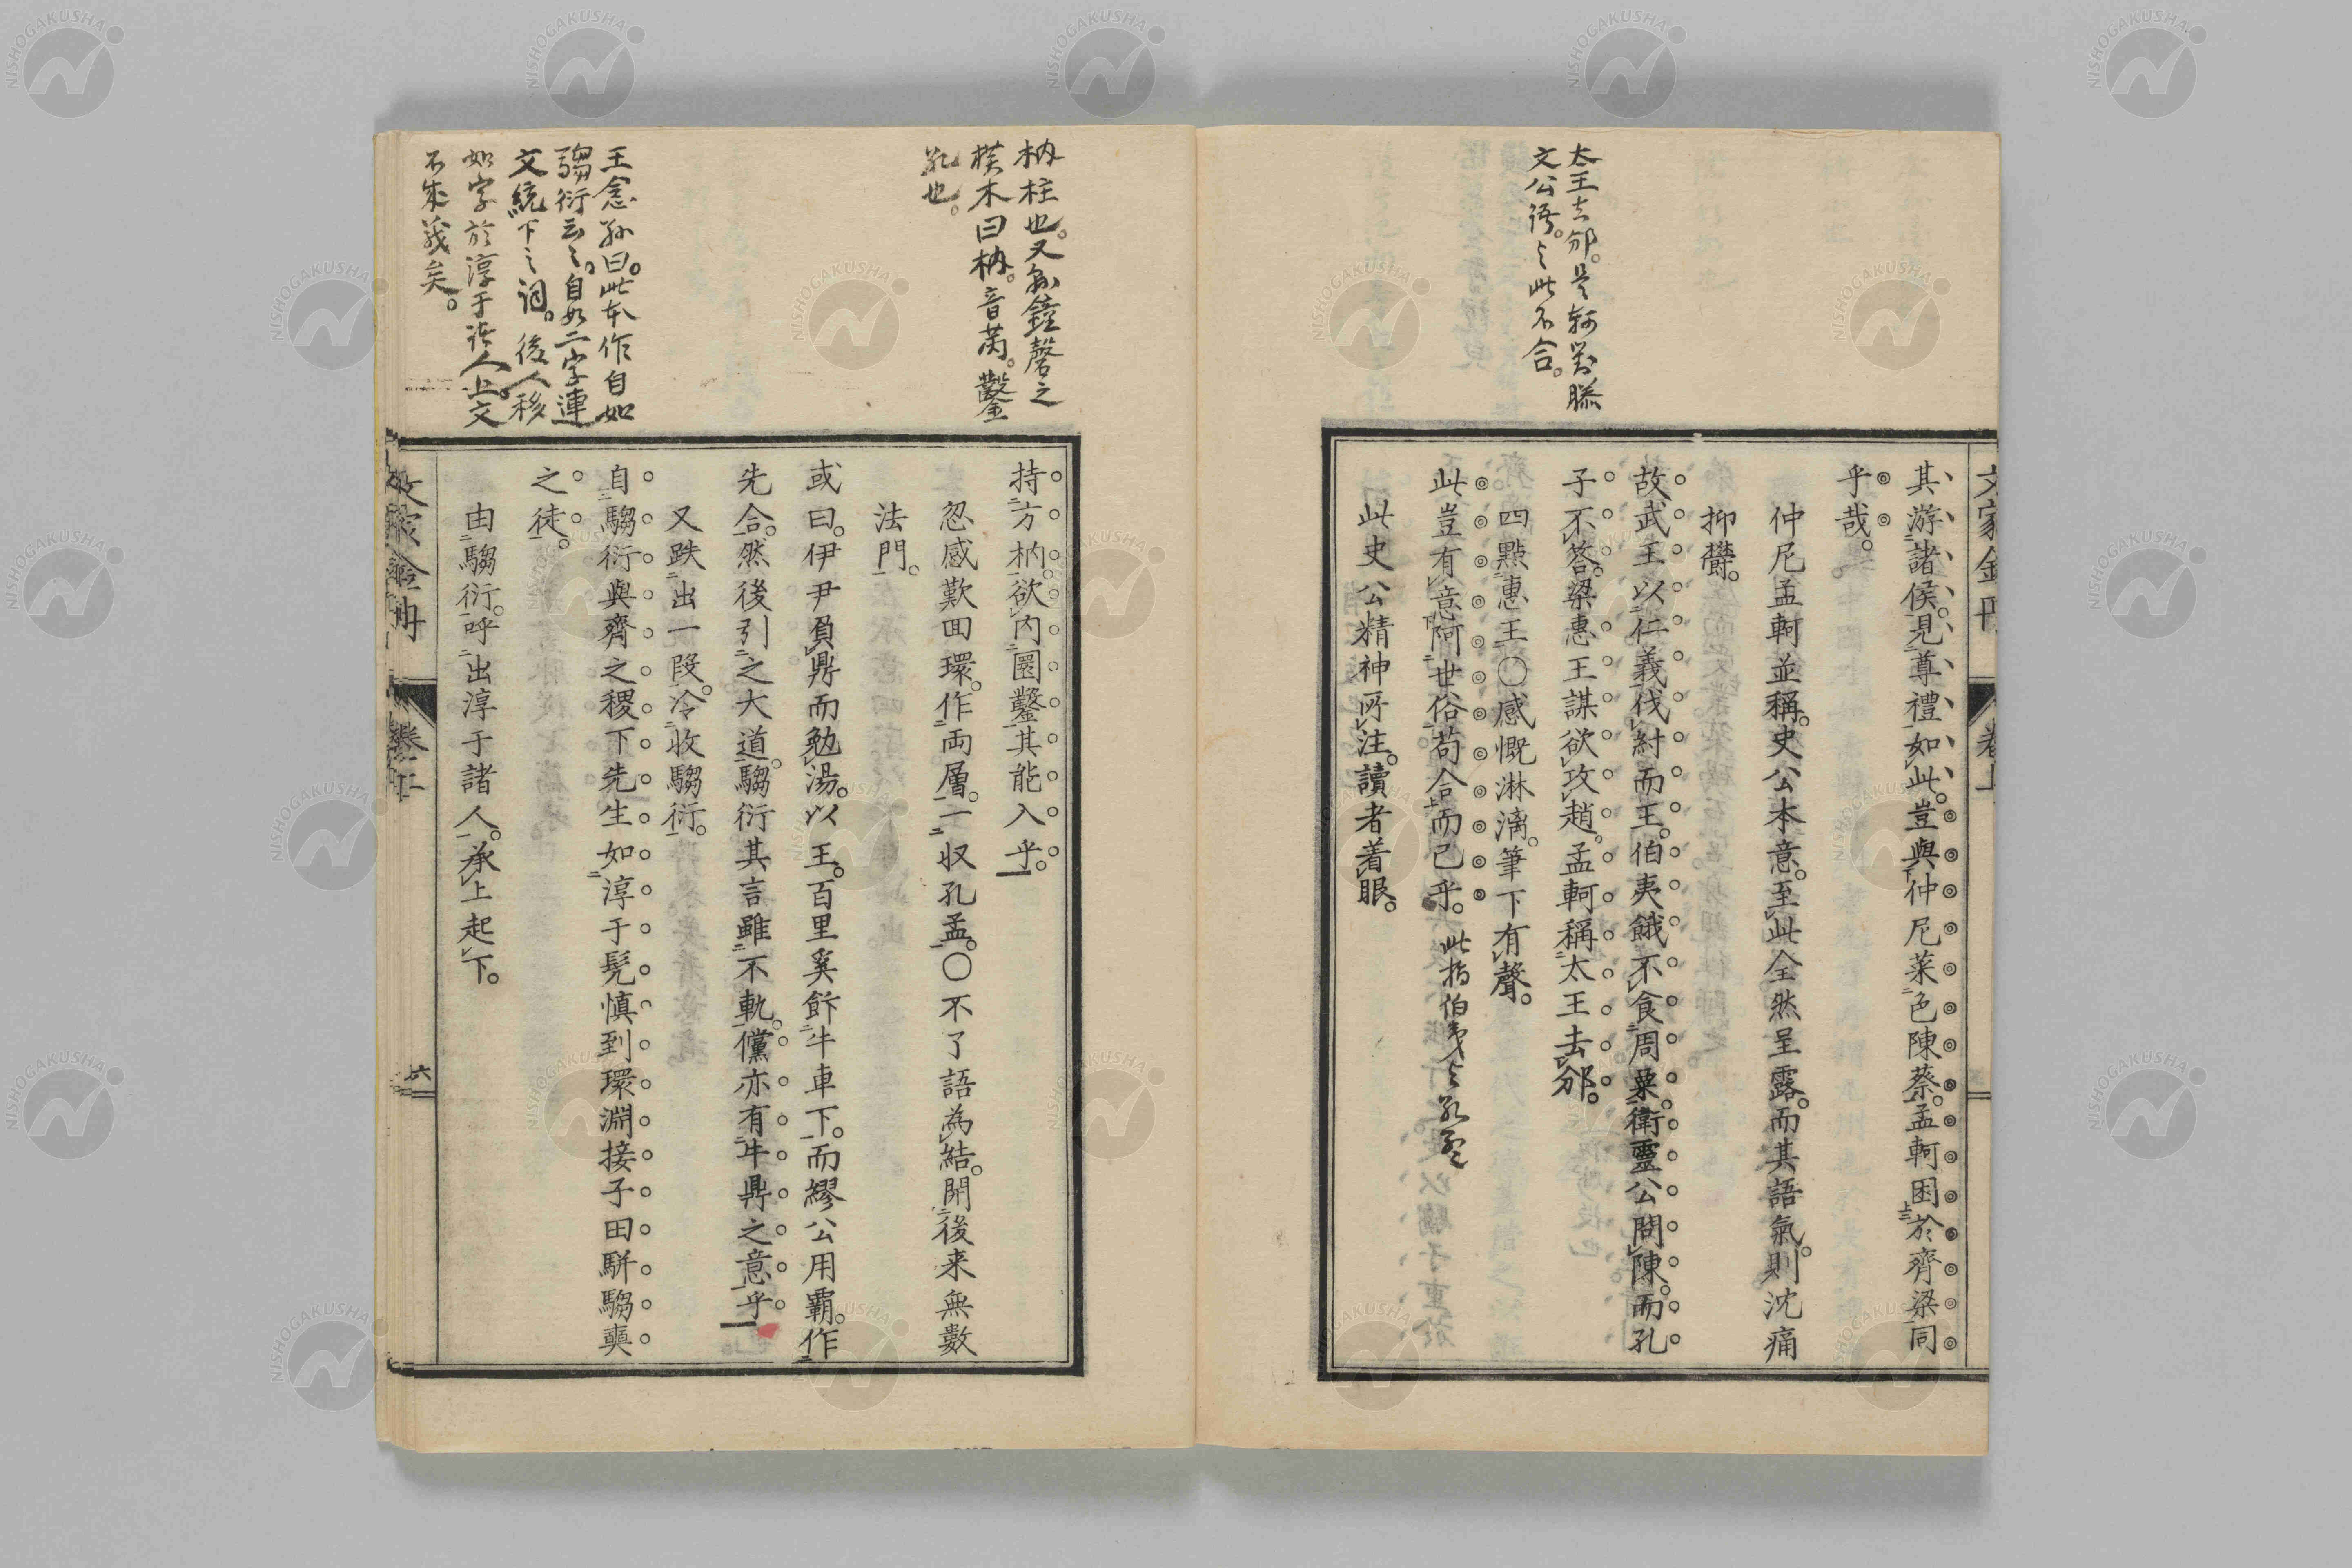 太王去邠。是軻對滕
文公語。與此不合。
文家金丹
卷上
其游諸侯。見尊禮如此。豈與仲尼菜色陳蔡。孟軻困於齊梁同
乎哉。
仲尼孟軻並稱。史公本意。至此全然呈露。而其語氣。則沈痛
抑欝。
故武王以仁義伐紂而王。伯夷餓不食周粟。衛靈公問陳。而孔
子不答。梁惠王謀欲攻趙。孟軻稱太王去邠。
四點惠王〇感慨淋漓。筆下有聲。
此豈有意阿世俗苟合而已乎。此指伯夷与孔孟
此史公精神所注。讀者着眼。
枘柱也。又為鐘磬之
樸木曰枘。音芮。鑿
孔也。
王念孫曰。此本作自如
騶衍云々。自如二字連
文統下之詞。後人移
如字於淳于諸人上。文
不成義矣。
持方枘。欲內圜鑿。其能入乎。
忽感歎回環。作兩層。一收孔孟。〇不了語為結。開後来無數
法門。
或曰。伊尹負鼎而勉湯。以王。百里奚飯牛車下。而繆公用霸。作
先合。然後引之大道。騶衍其言雖不軌。儻亦有牛鼎之意乎。
又跌出一段。冷收騶衍。
自騶衍與齊之稷下先生。如淳于髡慎到環淵接子田駢騶奭
之徒。
由騶衍。呼出淳于諸人。承上起下。
文家金丹
卷上
六
NISHOGAKUSHA